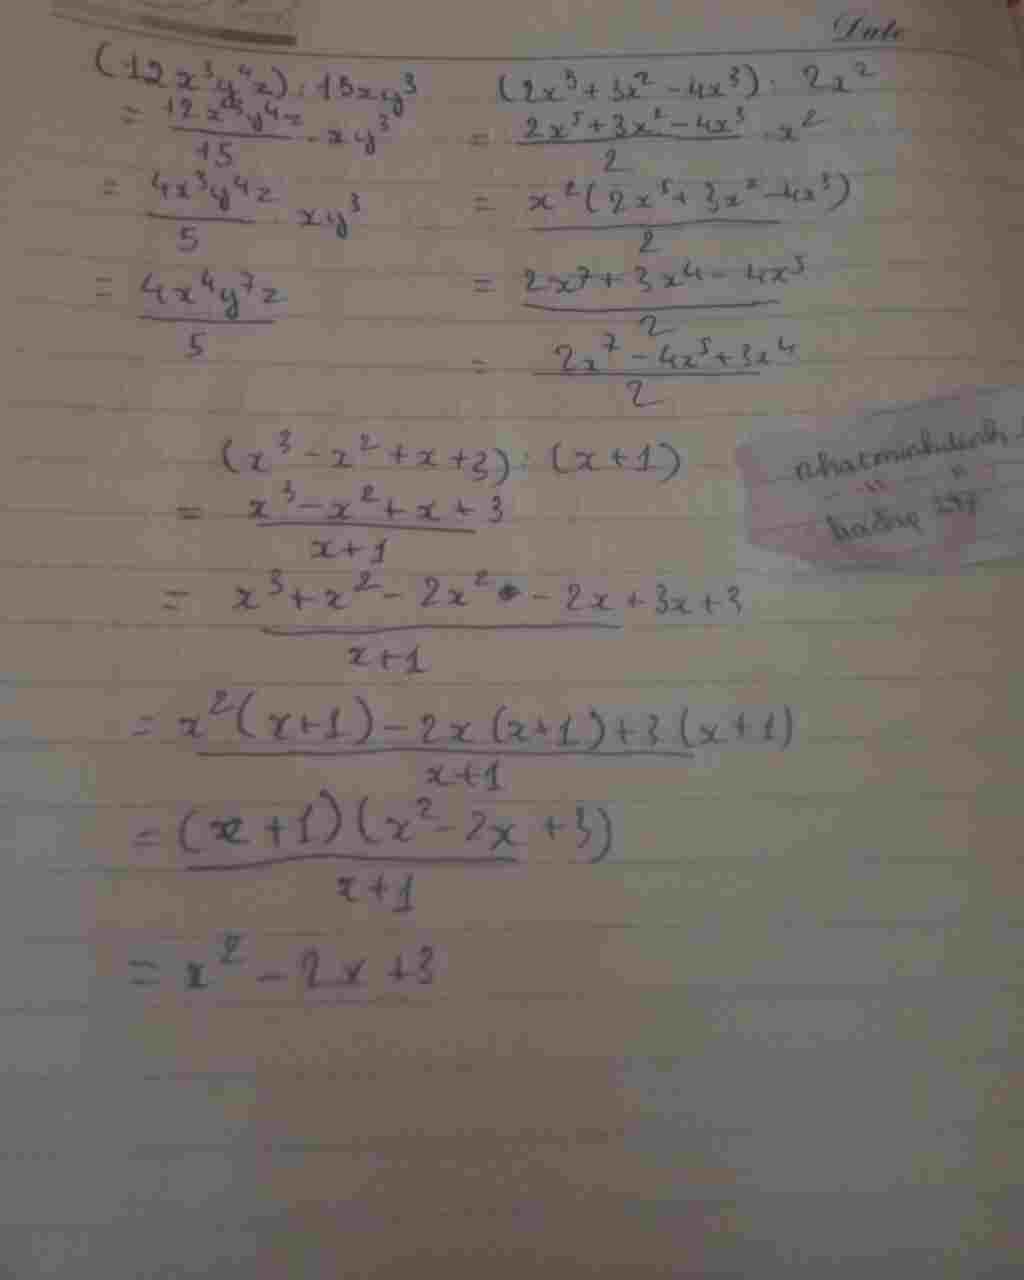 Date
(12x³y⁴z) : 15xy³
= 12x³y⁴z/15 . xy³
= 4x³y⁴z/5 . xy³
= 4x⁴y⁷z/5
(2x⁵ + 3x² - 4x³) : 2x²
= 2x⁵ + 3x² - 4x³/2 . x²
= x²(2x⁵ + 3x² - 4x³)/2
= 2x⁷ + 3x⁴ - 4x⁵/2
= 2x⁷ - 4x⁵ + 3x⁴/2
(x³ - x² + x + 3) : (x + 1)
= x³ - x² + x + 3/x + 1
= x³ + x² - 2x² - 2x + 3x + 3/x + 1
= x²(x + 1) - 2x(x + 1) + 3(x + 1)/x + 1
= (x + 1)(x² - 2x + 3)/x + 1
= x² - 2x + 3